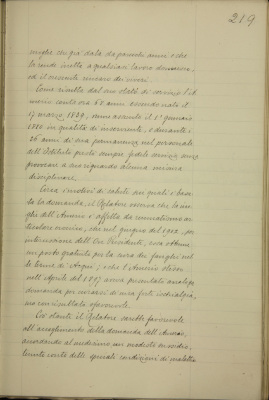 219
moglie che già data da parecchi anni e che
la rende inetta a qualsiasi lavoro domestico,
ed il crescente rincaro dei viveri.
Come risulta dal suo stato di servizio l'A
merio conta ora 68 anni essendo nato il
17 marzo 1839, venne assunto il 1° gennaio
1880 in qualità di inserviente, e durante i
26 anni di sua permanenza nel personale
dell'Istituto prestò sempre fedele servizio senza
provocare a suo riguardo alcuna misura
disciplinare.
Circa i motivi di salute sui quali è basa
ta la domanda, il Relatore osserva che la mo
glie dell'Amerio è affetta da reumatismo ar
ticolare cronico, che nel giugno del 1902, per
intercessione dell'On. Presidente, essa ottenne
un posto gratuito per la cura dei fanghi nel
le terme di Acqui, e che l'Amerio stesso
nell'Aprile del 1907 aveva presentata analoga
domanda per curarsi di una forte ischialgia,
ma con risultato sfavorevole.
Ciò stante il Relatore sarebbe favorevole
all'accoglimento della domanda dell'Amerio,
accordando al medesimo un modesto sussidio,
tenuto conto delle speciali condizioni di malattia